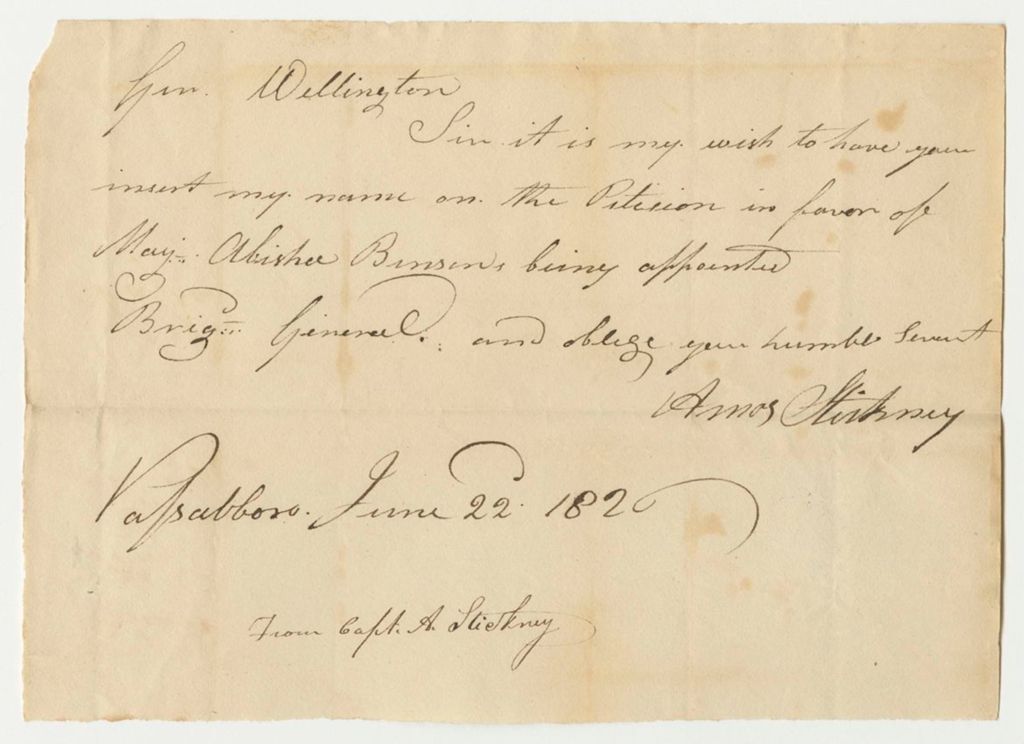 Gen. Wellington
Sir it is my wish to have your
insert my name on the Peticion in favor of
Maj. Abisha Bensons being appointed
Brig. General. and oblege your humble Servant
Amos Stickney
Vassalboro. June 22d. 1820
From Capt. A. Stickney